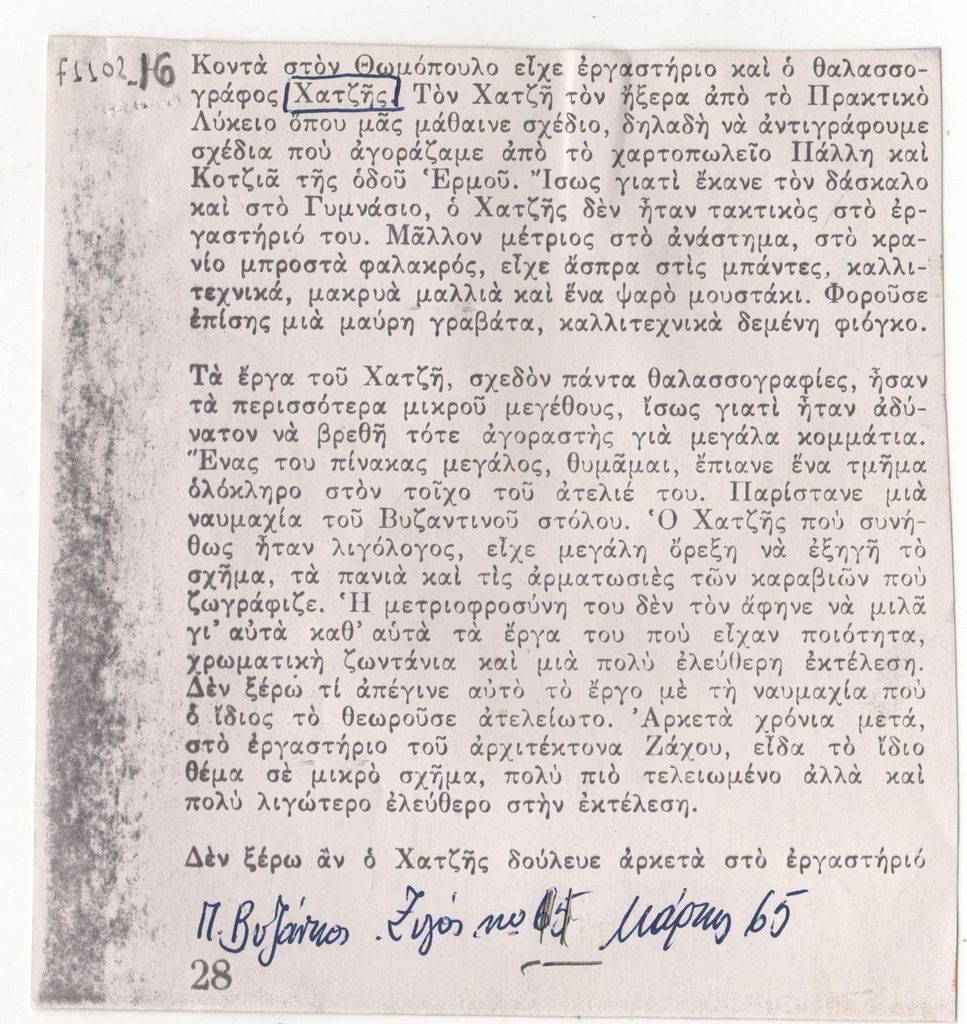 f1102_H6
Κοντὰ στὸν Θωμόπουλο εἶχε ἐργαστήριο καὶ ὁ θαλασσο-
γράφος Χατζῆς. Τὸν Χατζῆ τὸν ἤξερα ἀπὸ τὸ Πρακτικὸ
Λύκειο ὅπου μᾶς μάθαινε σχέδιο, δηλαδὴ νὰ ἀντιγράφουμε
σχέδια ποὺ ἀγοράζαμε ἀπὸ τὸ χαρτοπωλεῖο Πάλλη καὶ
Κοτζιᾶ τῆς ὁδοῦ Ἑρμοῦ. Ἴσως γιατὶ ἔκανε τὸν δάσκαλο
καὶ στὸ Γυμνάσιο, ὁ Χατζῆς δὲν ἦταν τακτικὸς στὸ ἐρ-
γαστήριό του. Μᾶλλον μέτριος στὸ ἀνάστημα, στὸ κρα-
νίο μπροστὰ φαλακρός, εἶχε ἄσπρα στὶς μπάντες, καλλι-
τεχνικά, μακρυὰ μαλλιὰ καὶ ἕνα ψαρὸ μουστάκι. Φοροῦσε
ἐπίσης μιὰ μαύρη γραβάτα, καλλιτεχνικὰ δεμένη φιόγκο.
Τὰ ἔργα τοῦ Χατζῆ, σχεδὸν πάντα θαλασσογραφίες, ἦσαν
τὰ περισσότερα μικροῦ μεγέθους, ἴσως γιατὶ ἦταν ἀδύ-
νατον νὰ βρεθῆ τότε ἀγοραστὴς γιὰ μεγάλα κομμάτια.
Ἕνας του πίνακας μεγάλος, θυμᾶμαι, ἔπιανε ἕνα τμῆμα
ὁλόκληρο στὸν τοῖχο τοῦ ἀτελιέ του. Παρίστανε μιὰ
ναυμαχία τοῦ Βυζαντινοῦ στόλου. Ὁ Χατζῆς ποὺ συνή-
θως ἦταν λιγόλογος, εἶχε μεγάλη ὄρεξη νὰ ἐξηγῆ τὸ
σχῆμα, τὰ πανιὰ καὶ τὶς ἀρματωσιὲς τῶν καραβιῶν ποὺ
ζωγράφιζε. Ἡ μετριοφροσύνη του δὲν τὸν ἄφηνε νὰ μιλᾶ
γι' αὐτὰ καθ' αὑτὰ τὰ ἔργα του ποὺ εἶχαν ποιότητα,
χρωματικὴ ζωντάνια καὶ μιὰ πολὺ ἐλεύθερη ἐκτέλεση.
Δὲν ξέρω τί ἀπέγινε αὐτὸ τὸ ἔργο μὲ τὴ ναυμαχία ποὺ
ὁ ἴδιος τὸ θεωροῦσε ἀτελείωτο. Ἀρκετὰ χρόνια μετά,
στὸ ἐργαστήριο τοῦ ἀρχιτέκτονα Ζάχου, εἶδα τὸ ἴδιο
θέμα σὲ μικρὸ σχῆμα, πολὺ πιὸ τελειωμένο ἀλλὰ καὶ
πολὺ λιγώτερο ἐλεύθερο στὴν ἐκτέλεση.
Δὲν ξέρω ἂν ὁ Χατζῆς δούλευε ἀρκετὰ στὸ ἐργαστήριό
Π. Βυζάντιος. Ζυγός νο Μάρτης 65
28